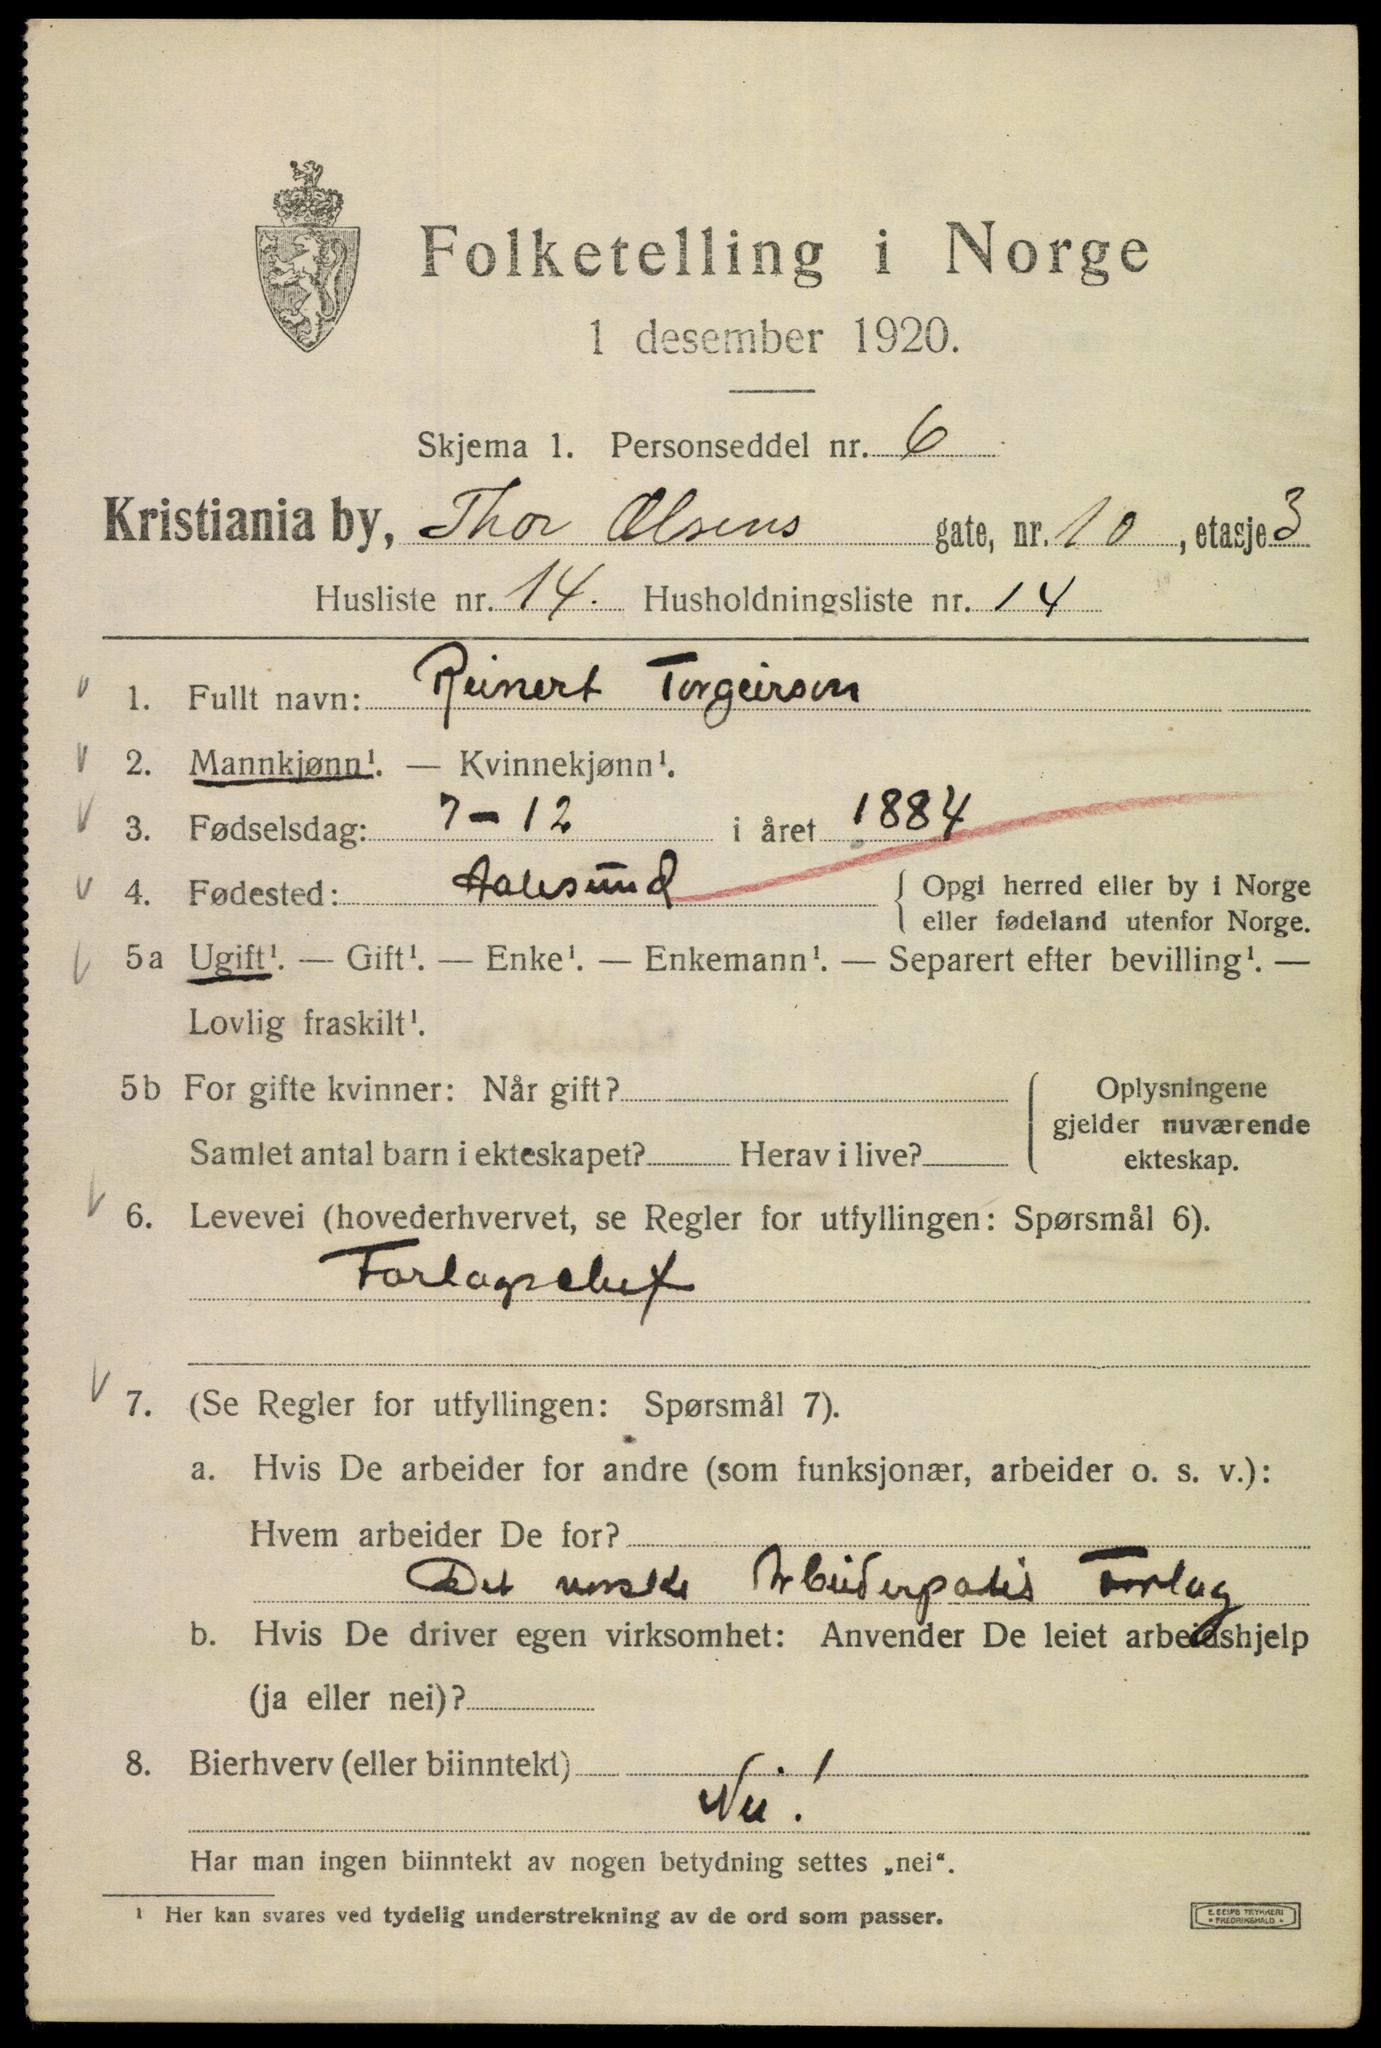 Folketelling i Norge
1 desember 1920.
Skjema 1. Personseddel nr. 6
Kristiania by, Thor Olsens gate, nr. 10, etasje 3
Husliste nr. 14. Husholdningsliste nr. 14
1. Fullt navn: Reinert Torgeirson
2. Mannkjønn¹. — Kvinnekjønn¹.
3. Fødselsdag: 7-12 i året 1884
4. Fødested: Aalesund { Opgi herred eller by i Norge
eller fødeland utenfor Norge.
5a Ugift¹. — Gift¹. — Enke¹. — Enkemann¹. — Separert efter bevilling¹. —
Lovlig fraskilt¹.
5b For gifte kvinner: Når gift? { Oplysningene
gjelder nuværende
Samlet antal barn i ekteskapet? Herav i live? ekteskap.
6. Levevei (hovederhvervet, se Regler for utfyllingen: Spørsmål 6).
Forlagschef
7. (Se Regler for utfyllingen: Spørsmål 7).
a. Hvis De arbeider for andre (som funksjonær, arbeider o. s. v.):
Hvem arbeider De for?
Det norske Arbeiderpatis Forlag
b. Hvis De driver egen virksomhet: Anvender De leiet arbeidshjelp
(ja eller nei)?
8. Bierhverv (eller biinntekt)
Nei!
Har man ingen biinntekt av nogen betydning settes „nei“.
¹ Her kan svares ved tydelig understrekning av de ord som passer.
E. SEMS TRYKKERI
• FREDRIKSHALD •